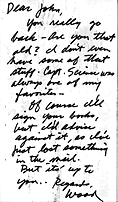 Dear John,
You really go
back - are you that
old? I don't even
have some of that
stuff. Capt. Science was
always one of my
favorites -
Of course I'll
sign your books,
but I'd advise
against it, as I've
just lost something
in the mail.
But it's up to
you.. Regards,
Wood